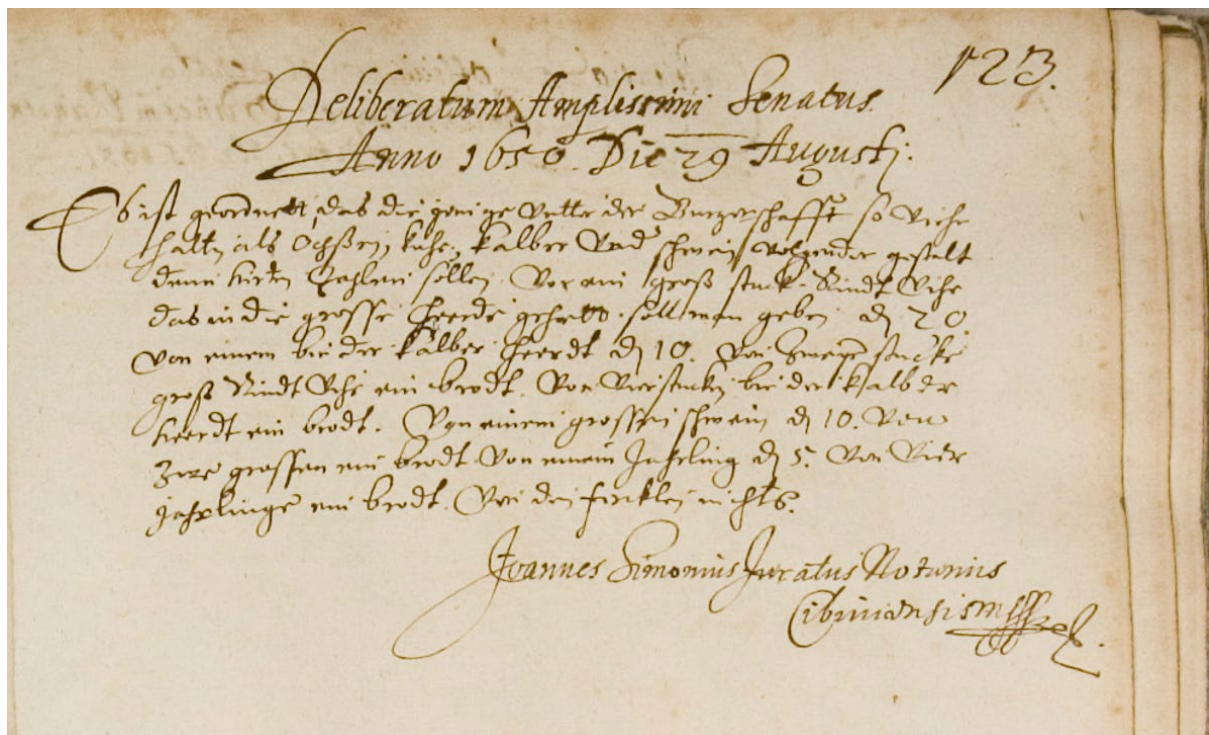 123.
Deliberatum Amplissimi Senatus.
Anno 1650. Die 29 Augustj.
Es ist geordnett, das die jenige vntter der Burgerschafft so Viehe
halten als Ochßen, kühe, kälber Vnd schwein, volgender gestalt
denn hirten Zahlen sollen. Vor ein groß stuck Rindt Vihe
das in die grosse heerde gehett soll man geben d 20.
Von einem bie der kälber heerdt d 10. Von Zweyen stucke
groß Rindt Vihe ein brodt. Von Vier stucken bie der kalber
heerdt ein brodt. Von einem grossen schwein d 10. Von
Zwe grossen ein brodt. Von einem Jahrling d 5. Von Vier
jahrlinge ein brodt. Von den fercklen nichts.
Joannes Simonius Juratus Notarius
Cibiniensis mppria